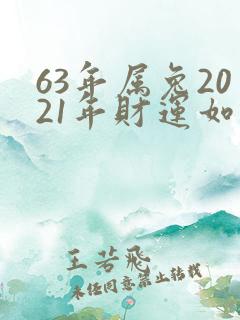 63年属兔20
21年财运如
王若飛
未经同意禁止转载